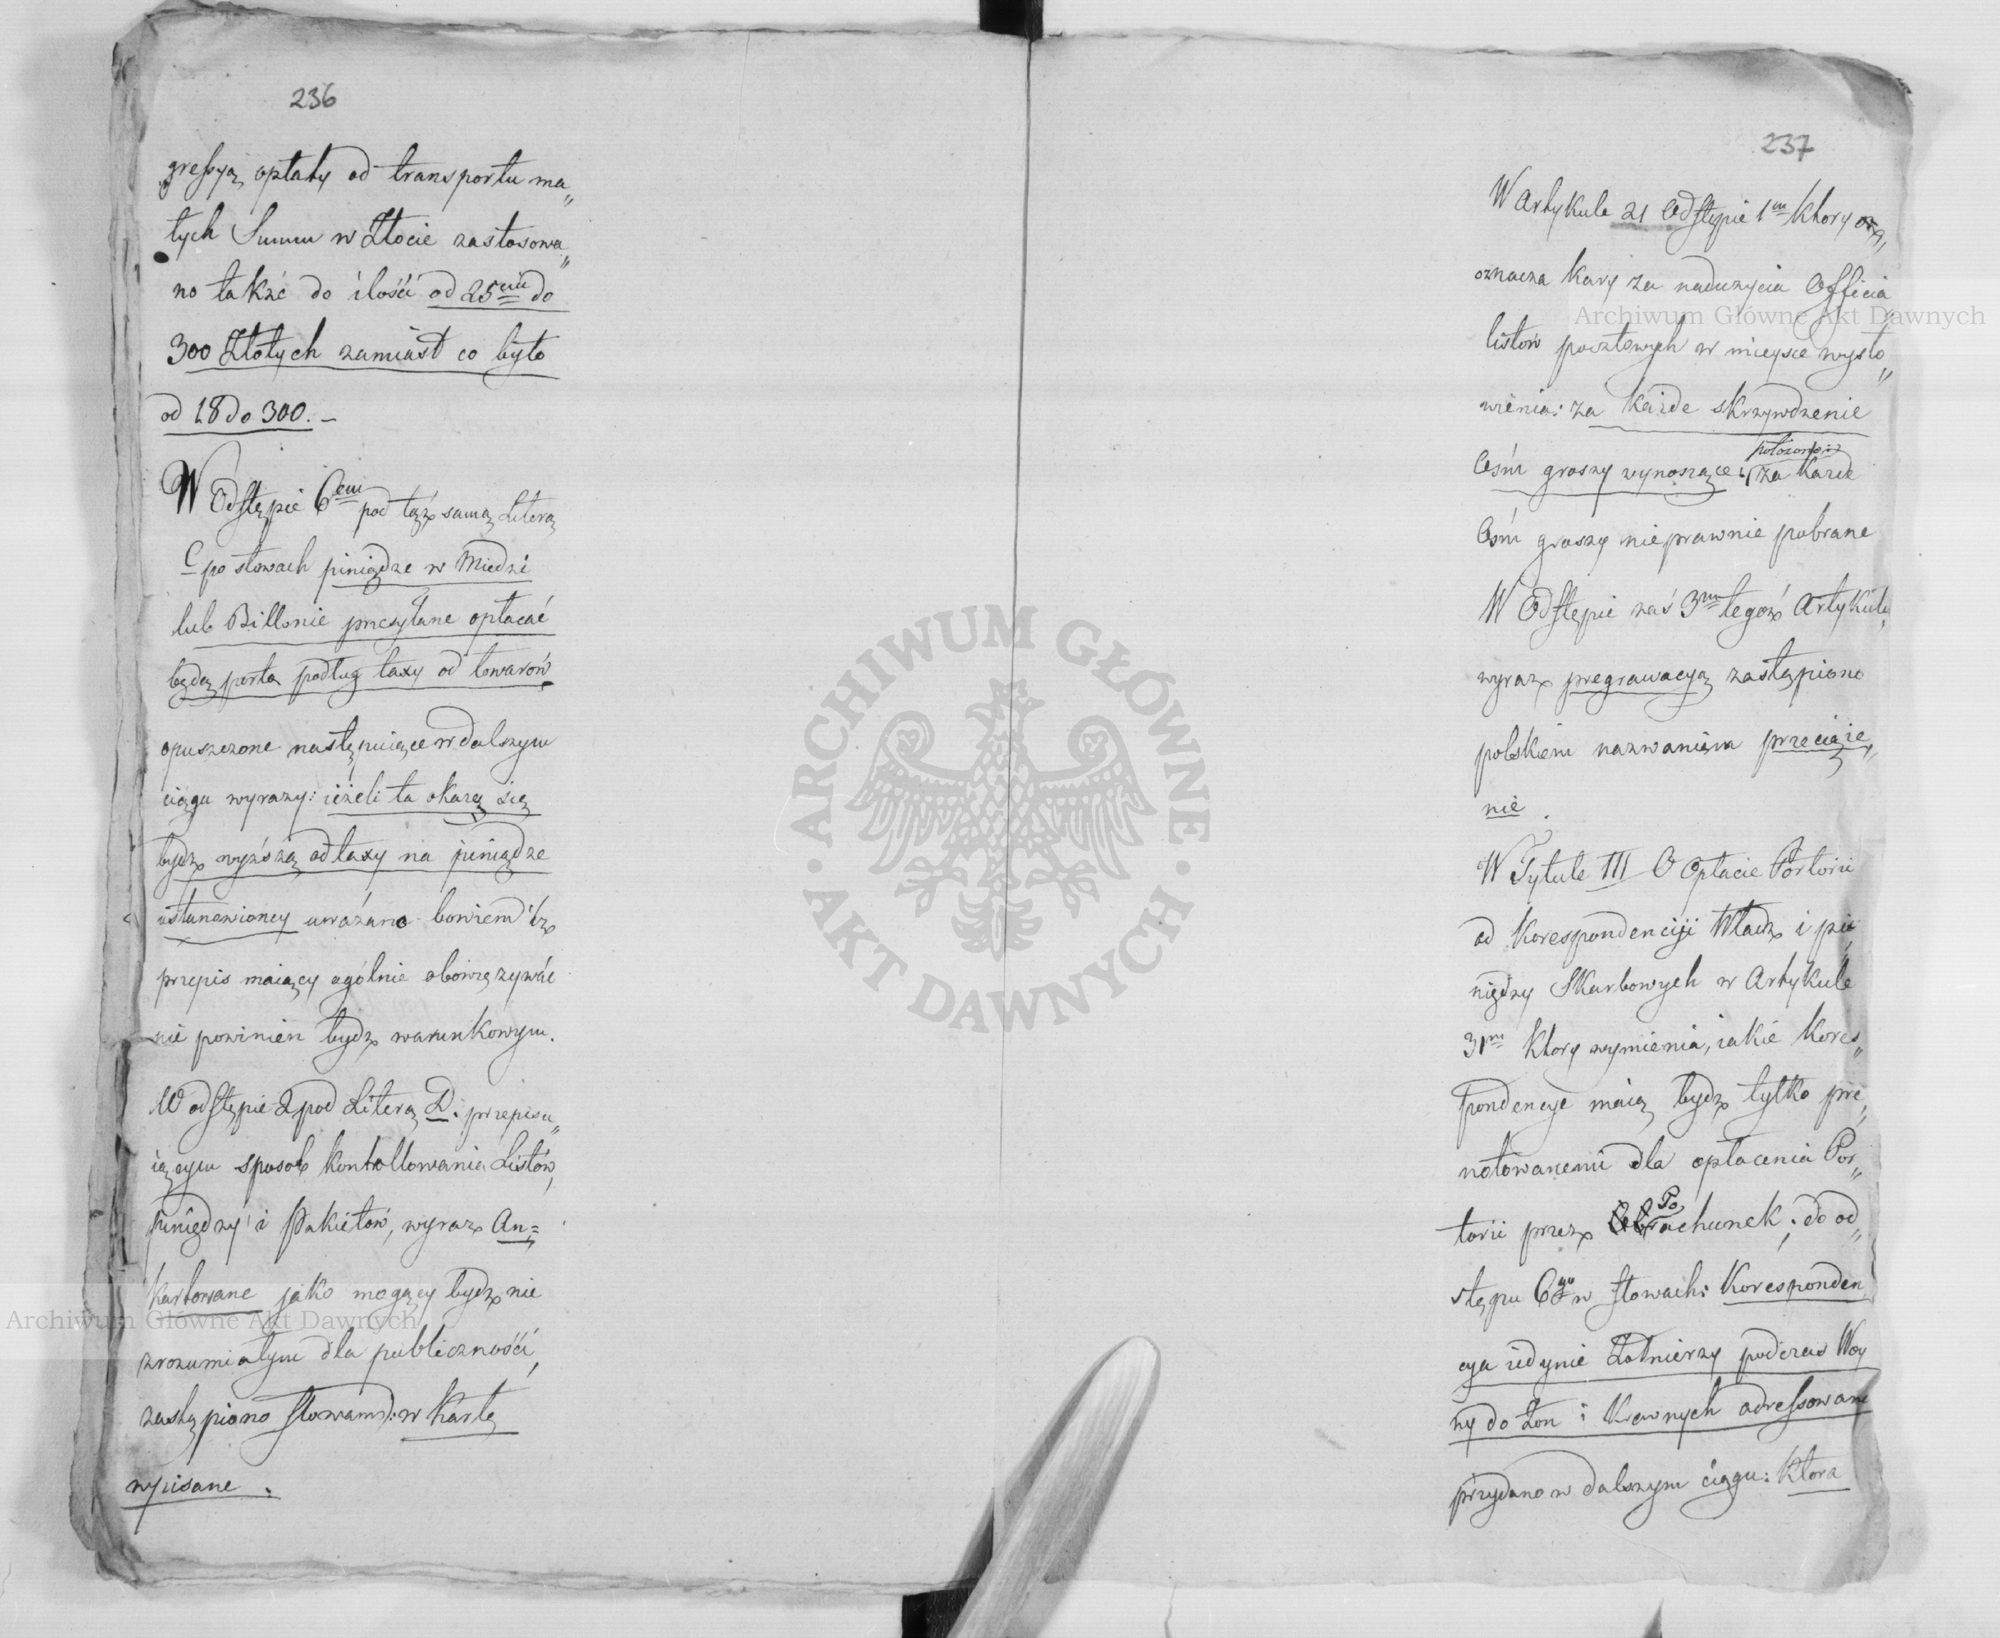 236
gressyą opłaty od transportu ma„
łych Summ w Złocie zastosowa„
no także do ilości od 25ciu do
300 Złotych zamiast co było
od 18 do 300. –
W Odstępie 6em pod tąż samą Literą
C po słowach pieniądze w Miedzi
lub Billonie przesyłane opłacać
będą porto podług taxy od towarow
opuszczone następuiące w dalszym
ciągu wyrazy: ieżeli ta okaże się
bydź wyższą od taxy na pieniądze
ustanowioney uważano bowiem iż
przepis maiący ogólnie obowiązywać
nie powinien bydź warunkowym.
W odstępie 2 pod Literą D. przepisu„
iącym sposob kontrollowania Listów,
pieniędzy i Pakietów, wyraz An„
kartowane jako mogący bydź nie
zrozumiałym dla publiczności,
zastąpiono słowami: w Kartę
wpisane.
237
W Artykule 21 Odstępie 1m ktory
oznacza kary za nadużycia Officia
listow pocztowych w mieysce wysło„
wienia: za każde skrzywdzenie
Ośm groszy wynoszące: położono: za każde
Ośm groszy nieprawnie pobrane
W Odstępie zaś 3m tegoż Artykułu
wyraz pregrawacyą zastąpiono
polskiem nazwaniem przeciąże„
nie.
W Tytule III O Opłacie Portorii
od Korespondencyi Władz i pie
niędzy Skarbowych w Artykule
31m ktory wymienia, iakie Kores„
pondencye maią bydź tylko pre„
notowanemi dla opłacenia Por„
torii przez Porachunek; do od„
stępu 6go w słowach: Koresponden
cya iedynie Żołnierzy podczas Woy
ny do Żon i Krewnych adressowana
przydano w dalszym ciągu: Ktora
Archiwum Główne Akt Dawnych
Archiwum Główne Akt Dawnych
ARCHIWUM GŁÓWNE · AKT DAWNYCH ·